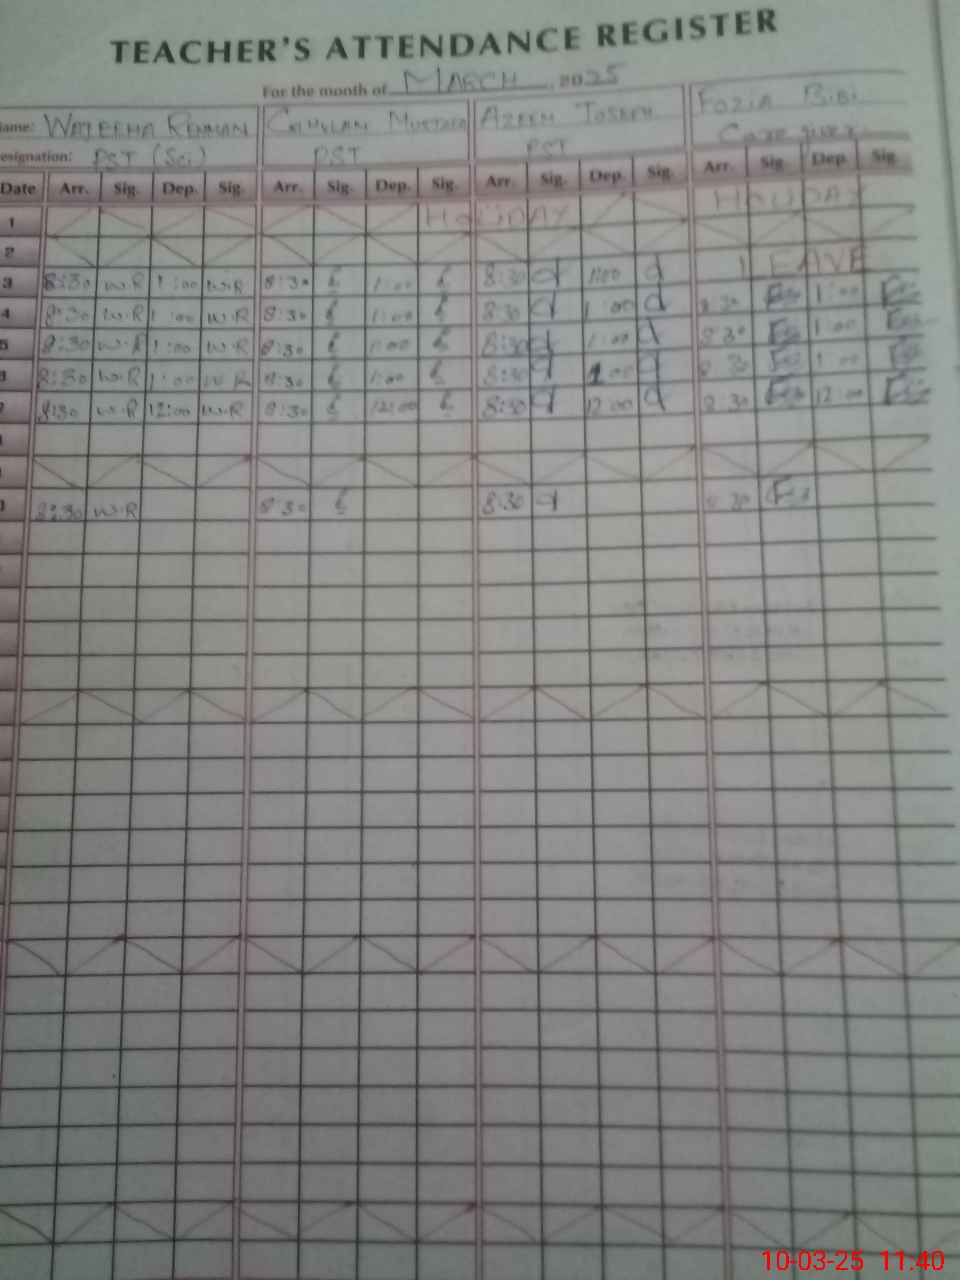 TEACHER'S ATTENDANCE REGISTER
For the month of MARCH, 2025
ame: WAJEEHA REHMAN GHULAM MUSTAFA AZEEM JOSEPH FOZIA BIBI
esignation: PST (Sci) PST PST Care giver
Date Arr. Sig. Dep. Sig. Arr. Sig. Dep. Sig. Arr. Sig. Dep. Sig. Arr. Sig. Dep. Sig.
1 HOLIDAY HOLIDAY
2
3 8:30 W.R 1:00 W.R 8:30 1:00 8:30 1:00 LEAVE
4 8:30 W.R 1:00 W.R 8:30 1:00 8:30 1:00 8:30 1:00
5 8:30 W.R 1:00 W.R 8:30 1:00 8:30 1:00 8:30 1:00
8:30 W.R 1:00 W.R 8:30 1:00 8:30 1:00 8:30 1:00
8:30 W.R 12:00 W.R 8:30 12:00 8:30 12:00 8:30 12:00
8:30 W.R 8:30 8:30 8:30
10-03-25 11:40